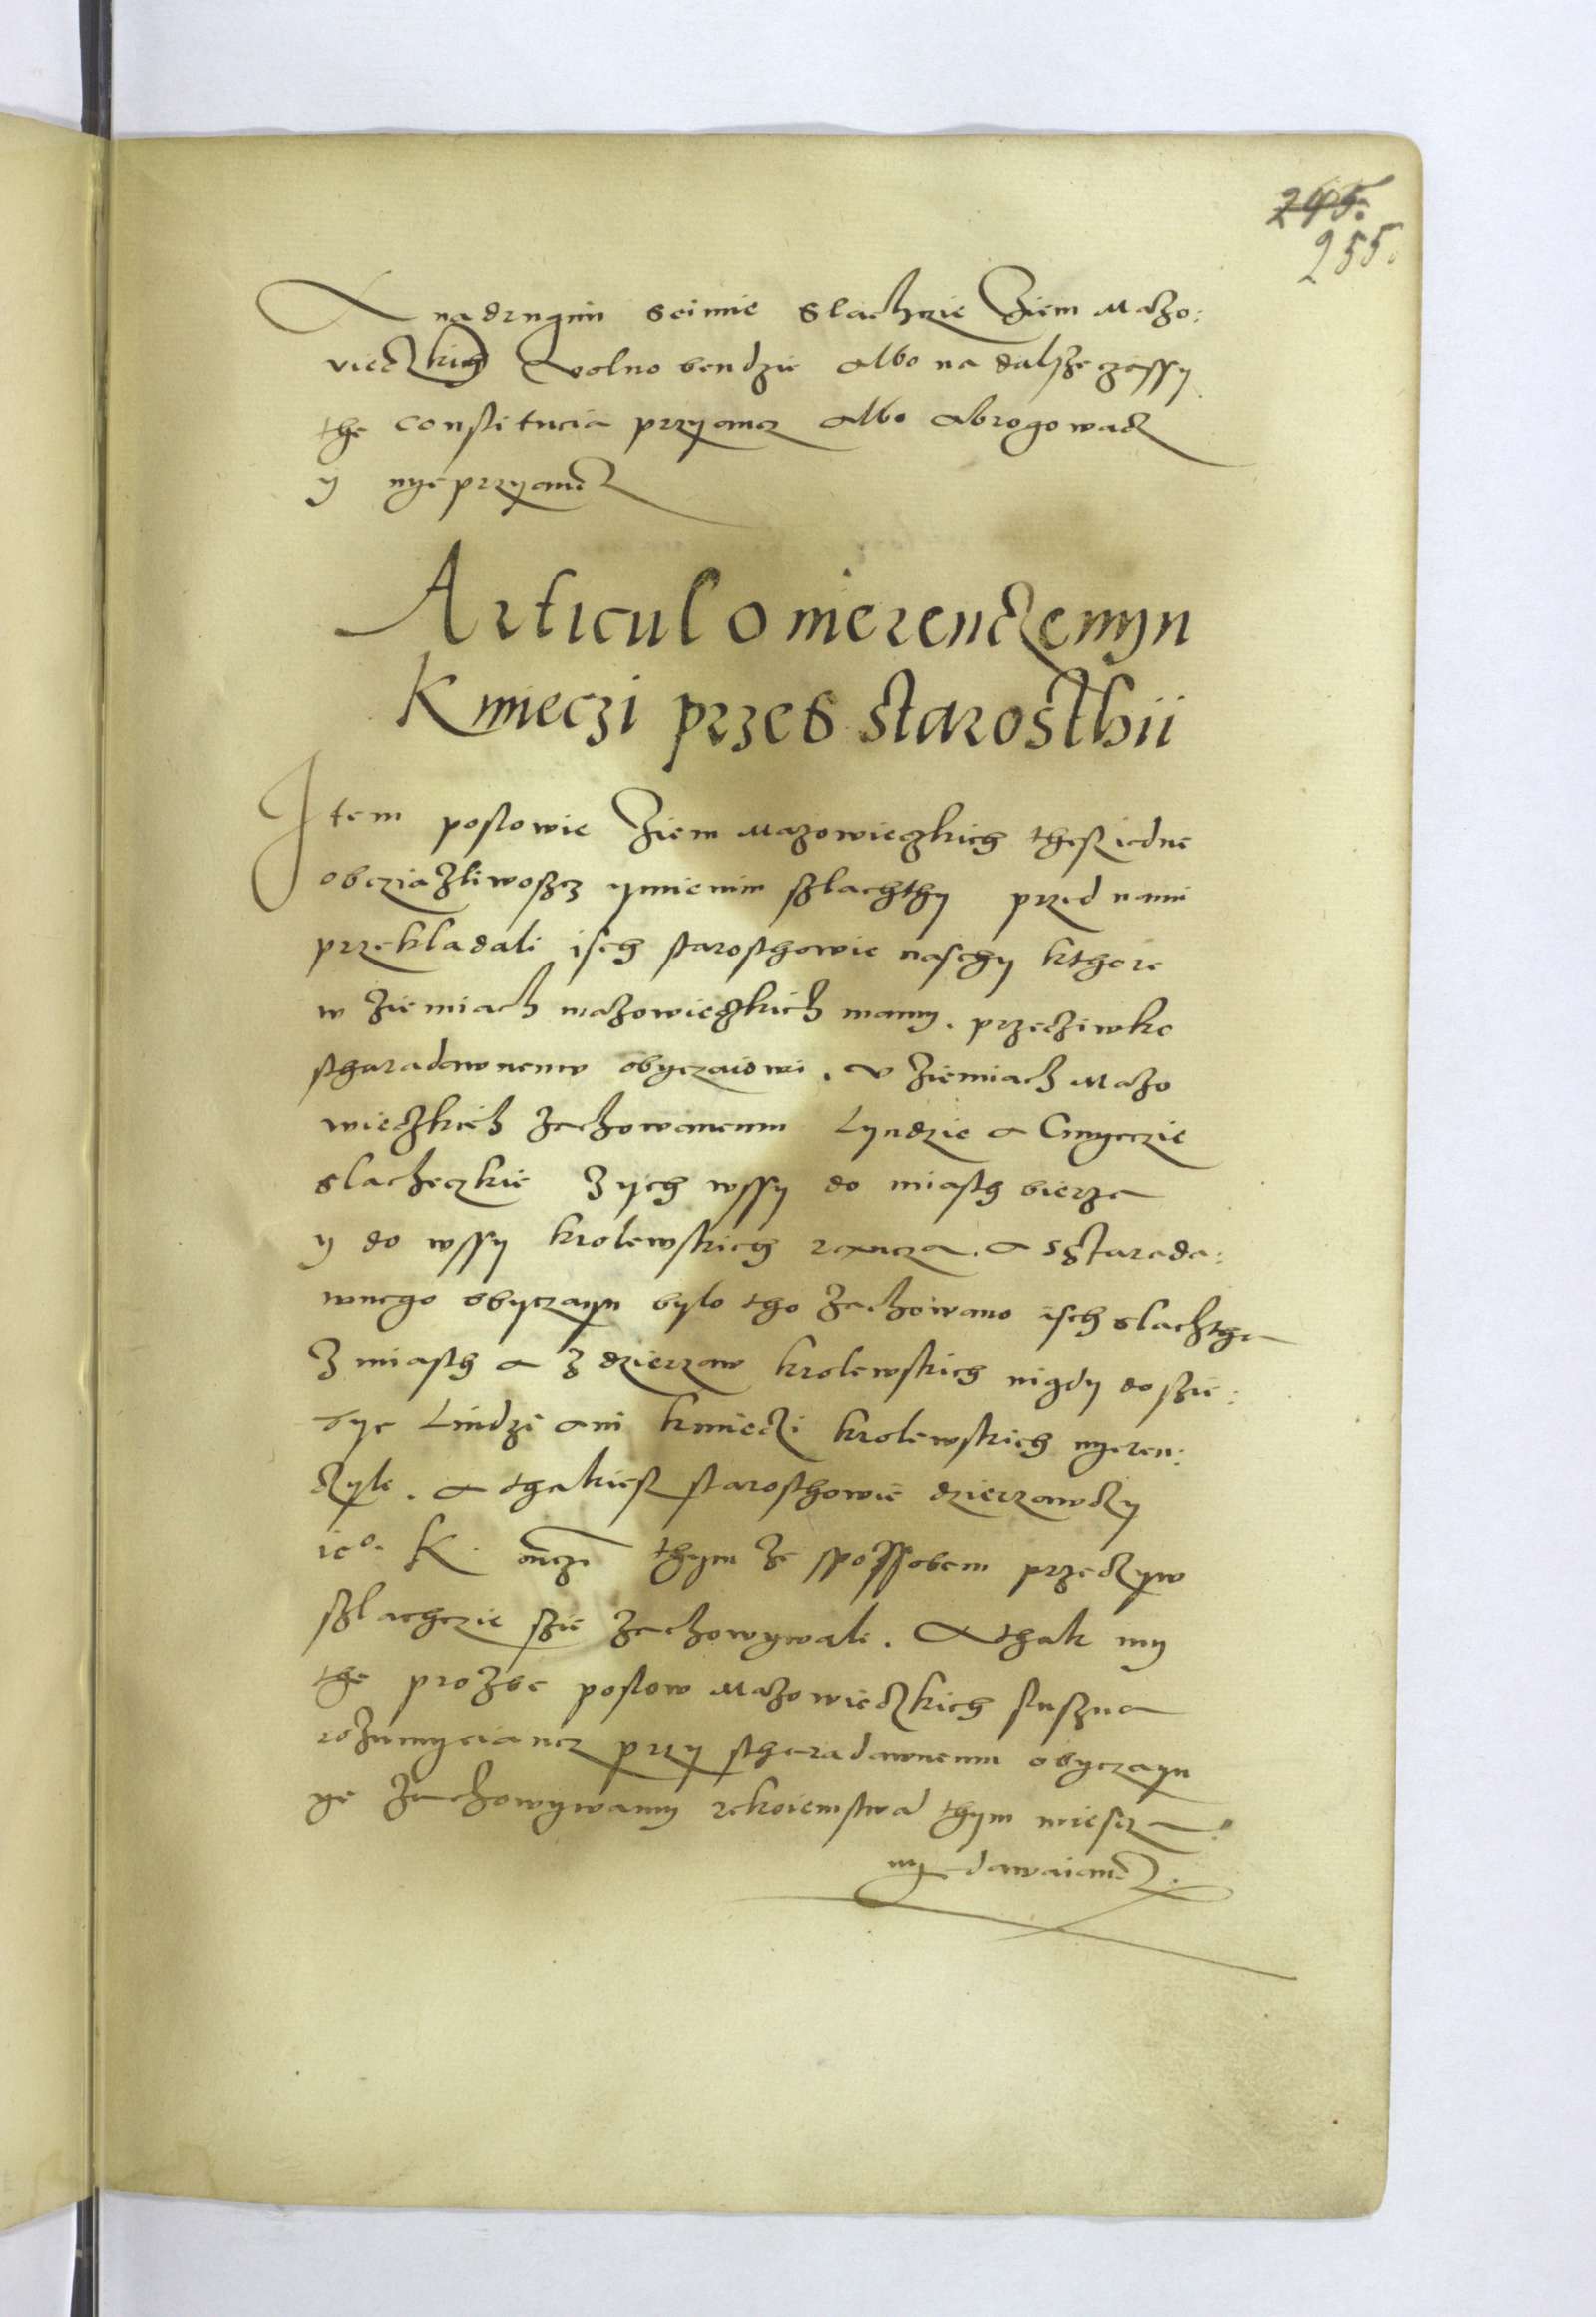 245.
255.
A na drugim seimie Slachczie Ziem Mazo:
vieczkich wolno bendzie albo na dalsze czassy
the constitucia przyancz albo abrogowacz
y nye przyancz
Articul o nierenczeniyu
Kmieczi przes starosthii
Item poslowie Ziem Mazowieczkich thesz iedne
obcziazliwoscz ymieniu szlachthy przed nami
przekladali isch starosthowie naschy kthore
w ziemiach mazowieczkich mamy. przecziwko
stharadawnemv obyczaiowi. w ziemiach Mazo
wieczkich zachowanemu Lyudzie a Cmyeczie
slacheczkie z ych wssy do miasth bierza
y do wssy krolewskich rancza. a s starada:
wnego obyczayu bylo tho zachowano isch slachtha
z miasth a z dzierzaw krolewskich nigdy do szie:
bye Liudzi ani kmieczi krolewskich nyeren:
czyla. a thakiesz starosthowie dzierzawczy
ieo. K. mczi thym ze spossobem przeczyw
szlachczie szie zachowywali. A thak my
the prozbe poslow Mazowieczkich sluszna
rozumyeiancz przy stharadawnemu obyczayu
ye zachowywamy rekoiemstwa thym miescza
nye dawaiancz.